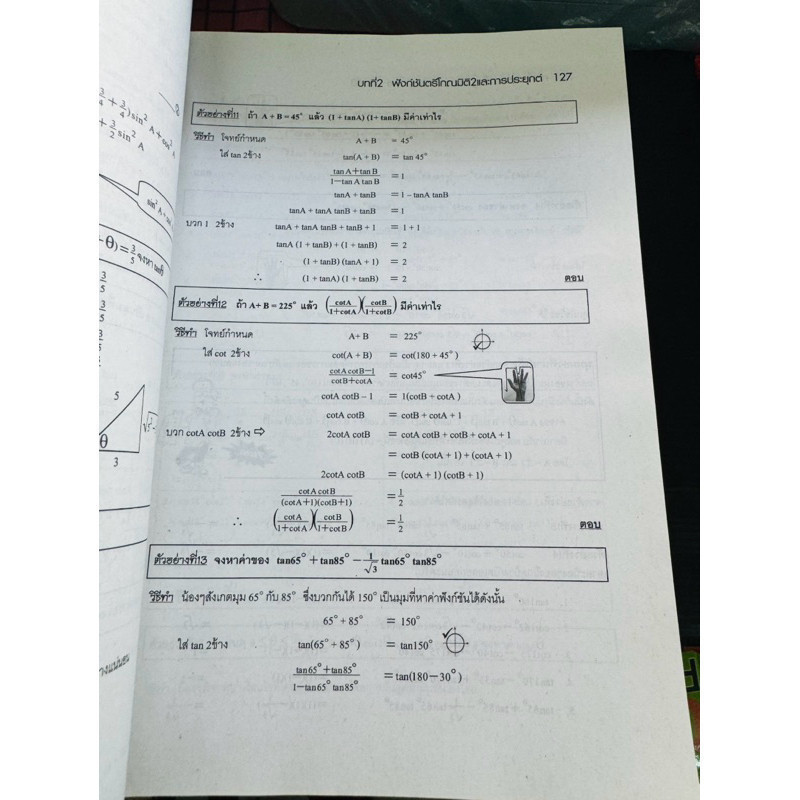 บทที่2 ฟังก์ชันตรีโกณมิติ2และการประยุกต์ 127
ตัวอย่างที่11 ถ้า A + B = 45° แล้ว (1 + tanA) (1+ tanB) มีค่าเท่าไร
วิธีทำ โจทย์กำหนด A + B = 45°
ใส่ tan 2ข้าง tan(A + B) = tan 45°
(tan A + tan B)/(1−tan A tan B) = 1
tanA + tanB = 1 − tanA tanB
tanA + tanA tanB + tanB = 1
บวก 1 2ข้าง tanA + tanA tanB + tanB + 1 = 1 + 1
tanA (1 + tanB) + (1 + tanB) = 2
(1 + tanB) (tanA + 1) = 2
∴ (1 + tanA) (1 + tanB) = 2 ตอบ
ตัวอย่างที่12 ถ้า A+ B = 225° แล้ว (cotA/(1+cotA))(cotB/(1+cotB)) มีค่าเท่าไร
วิธีทำ โจทย์กำหนด A+ B = 225°
ใส่ cot 2ข้าง cot(A + B) = cot(180 + 45°)
(cotA cotB−1)/(cotB+cotA) = cot45°
cotA cotB − 1 = 1(cotB + cotA )
cotA cotB = cotB + cotA + 1
บวก cotA cotB 2ข้าง ⇨ 2cotA cotB = cotA cotB + cotB + cotA + 1
= cotB (cotA + 1) + (cotA + 1)
2cotA cotB = (cotA + 1) (cotB + 1)
(cotA cotB)/((cotA+1)(cotB+1)) = 1/2
∴ (cotA/(1+cotA))(cotB/(1+cotB)) = 1/2 ตอบ
ตัวอย่างที่13 จงหาค่าของ tan65° + tan85° − (1/√3) tan65° tan85°
วิธีทำ น้องๆสังเกตมุม 65° กับ 85° ซึ่งบวกกันได้ 150° เป็นมุมที่หาค่าฟังก์ชันได้ดังนั้น
65° + 85° = 150°
ใส่ tan 2ข้าง tan(65° + 85°) = tan150°
(tan65° + tan85°)/(1−tan65° tan85°) = tan(180−30°)
+ 3/4)sin² A + cos²
+ 3/2 sin² A
θ) = 3/5 จงหา tanθ
3/5
3/5
3/5
5
θ
3